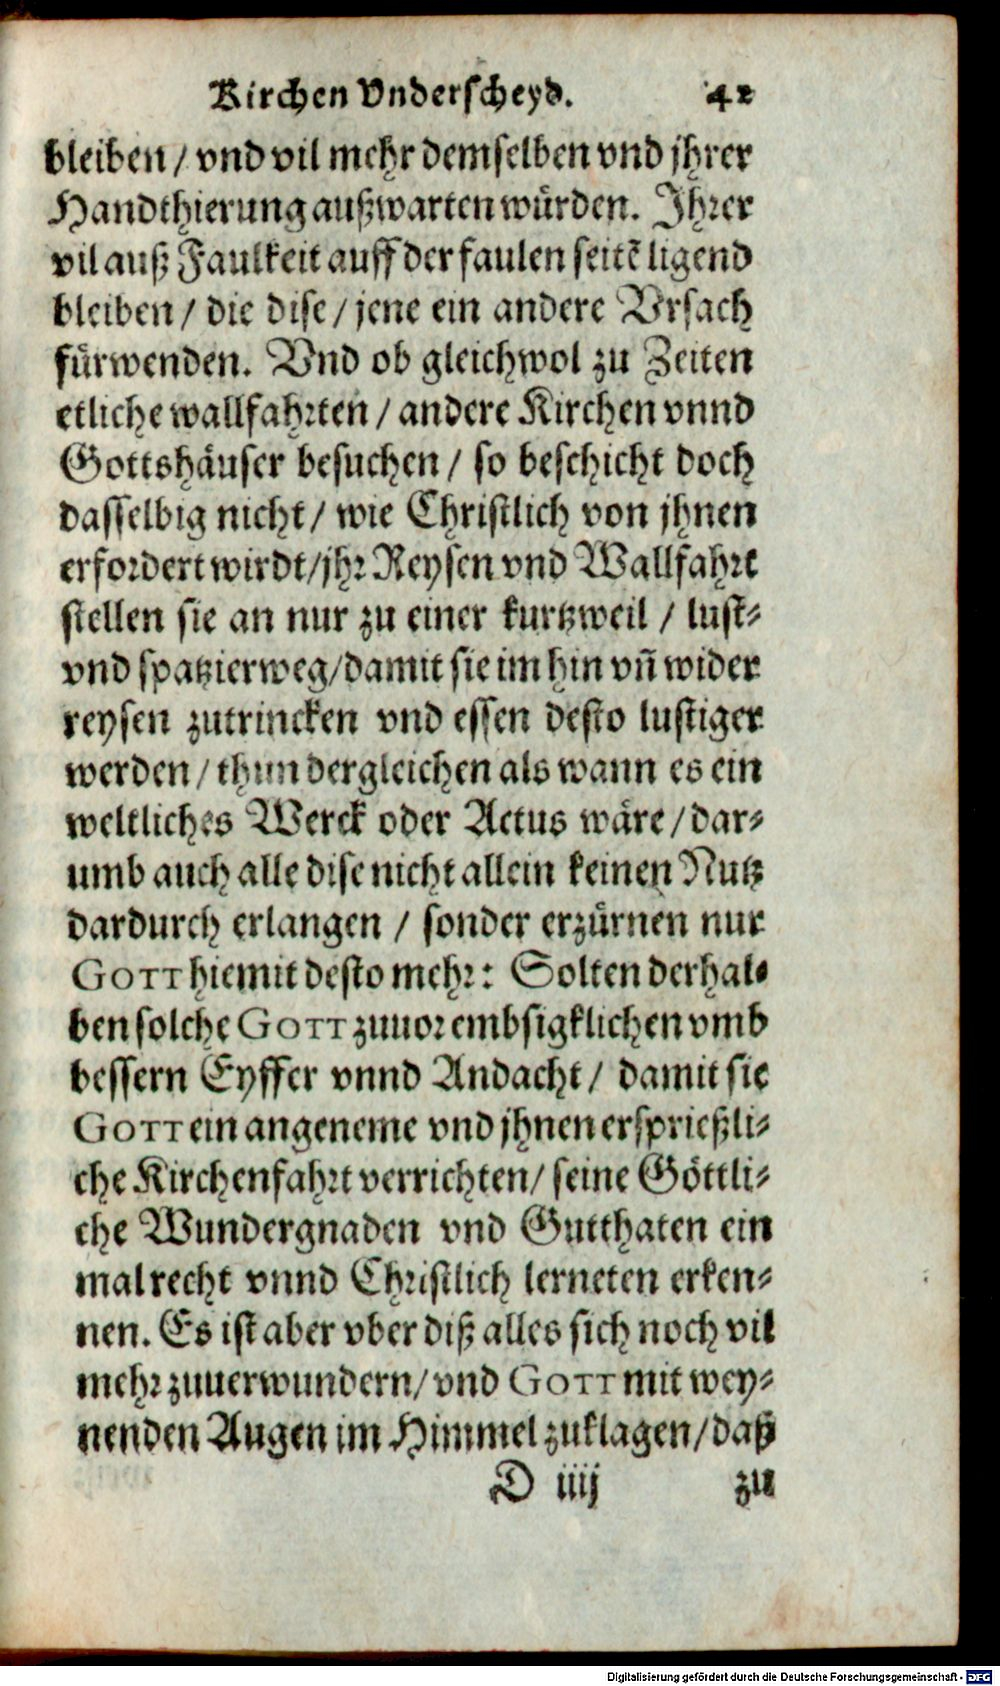 Kirchen Vnderscheyd. 42
bleiben / vnd vil mehr demselben vnd jhrer
Handthierung außwarten würden. Jhrer
vil auß Faulkeit auff der faulen seitẽ ligend
bleiben / die dise / jene ein andere Vrsach
fürwenden. Vnd ob gleichwol zu Zeiten
etliche wallfahrten / andere Kirchen vnnd
Gottshäuser besuchen / so beschicht doch
dasselbig nicht / wie Christlich von jhnen
erfordert wirdt / jhr Reysen vnd Wallfahrt
stellen sie an nur zu einer kurtzweil / lust-
vnd spatzierweg / damit sie im hin vñ wider
reysen zutrincken vnd essen desto lustiger
werden / thun dergleichen als wann es ein
weltliches Werck oder Actus wäre / dar-
umb auch alle dise nicht allein keinen Nutz
dardurch erlangen / sonder erzürnen nur
GOTT hiemit desto mehr: Solten derhal-
ben solche GOTT zuuor embsigklichen vmb
bessern Eyffer vnnd Andacht / damit sie
GOTT ein angeneme vnd jhnen ersprießli-
che Kirchenfahrt verrichten / seine Göttli-
che Wundergnaden vnd Gutthaten ein
mal recht vnnd Christlich lerneten erken-
nen. Es ist aber vber diß alles sich noch vil
mehr zuuerwundern / vnd GOTT mit wey-
nenden Augen im Himmel zuklagen / daß
D iiij zu
Digitalisierung gefördert durch die Deutsche Forschungsgemeinschaft - DFG